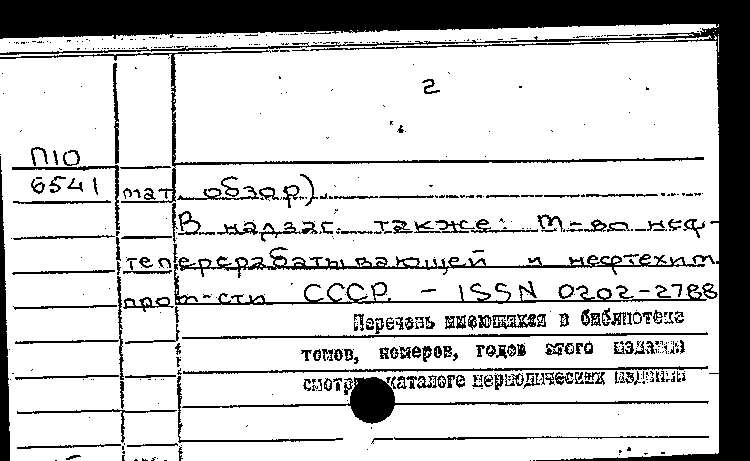 2
П10
6541 мат. обзор).
В надзаг. также: М-во неф-
теперерабатывающей и нефтехим.
пром-сти СССР. - ISSN 0202-2788
Перечень имеющихся в библиотеке
томов, номеров, годов этого издания
смотри каталоге периодических изданий